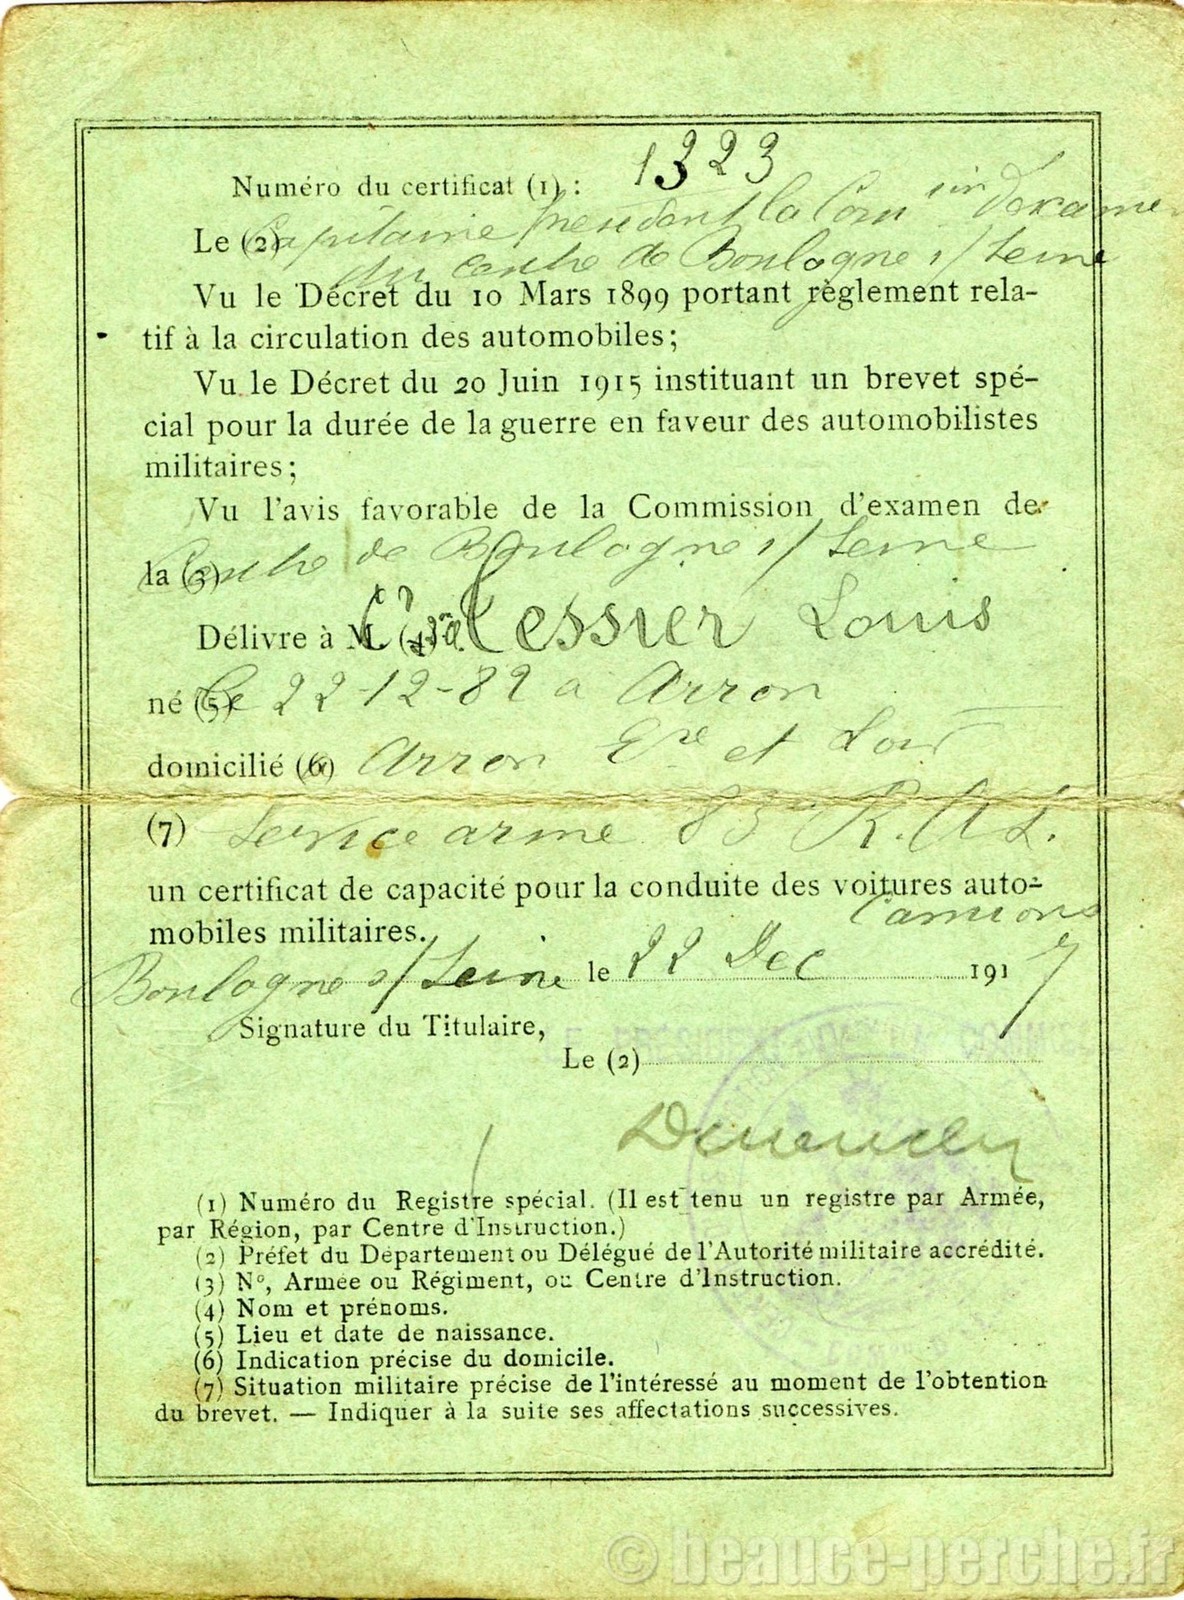 Numéro du certificat (1) : 1323
Le (2) Capitaine Président la Com sion d'examen
du centre de Boulogne s/ Seine
Vu le Décret du 10 Mars 1899 portant règlement rela-
tif à la circulation des automobiles;
Vu le Décret du 20 Juin 1915 instituant un brevet spé-
cial pour la durée de la guerre en faveur des automobilistes
militaires;
Vu l'avis favorable de la Commission d'examen de
la (3) Centre de Boulogne s/ Seine
Délivre à M (4) Tessier Louis
né (5) le 22-12-82 a Arron
domicilié (6) Arron Ere et Loir
(7) Service armé 83e R. A. L.
un certificat de capacité pour la conduite des voitures auto-
mobiles militaires. Camions
Boulogne s/ Seine le 22 Dec 1917
Signature du Titulaire,
LE PRÉSIDENT DE LA COMMIS
Le (2)
(1) Numéro du Registre spécial. (Il est tenu un registre par Armée,
par Région, par Centre d'Instruction.)
(2) Préfet du Département ou Délégué de l'Autorité militaire accrédité.
(3) N°, Armée ou Régiment, ou Centre d'Instruction.
(4) Nom et prénoms.
(5) Lieu et date de naissance.
(6) Indication précise du domicile.
(7) Situation militaire précise de l'intéressé au moment de l'obtention
du brevet. — Indiquer à la suite ses affectations successives.
© beauce-perche.fr